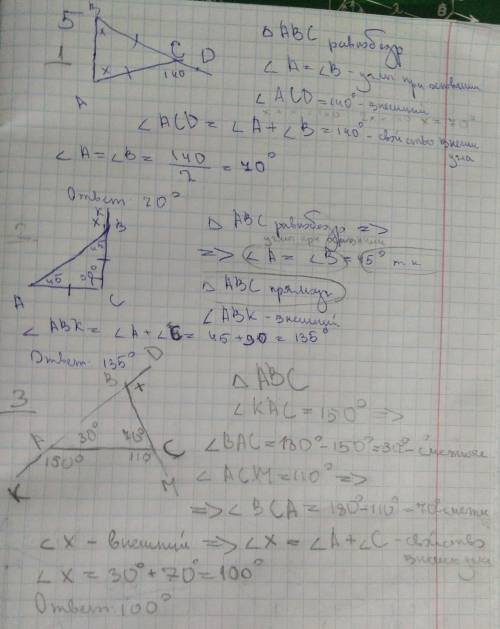 5
B
x
C
D
x
140
A
△ ABC равнобедр
∠A = ∠B - углы при основании
∠ACD = 140° - внешний
x = 70°
1
∠ACD = ∠A + ∠B = 140° - свойство внешн угла
∠A = ∠B = 140/2 = 70°
Ответ 70°
2
K
x
B
45
45
90°
A
C
△ ABC равнобедр =>
=> ∠A = ∠B = 45° т к
△ ABC прямоуг
∠ABK - внешний
∠ABK = ∠A + ∠C = 45 + 90 = 135°
Ответ 135°
3
D
B
x
A
30°
70°
C
150°
110
K
M
△ ABC
∠KAC = 150° =>
∠BAC = 180° - 150° = 30° - смежные
∠ACM = 110° =>
=> ∠BCA = 180° - 110° = 70° смежн
∠X - внешний => ∠X = ∠A + ∠C - свойство внешн угла
∠X = 30° + 70° = 100°
Ответ 100°